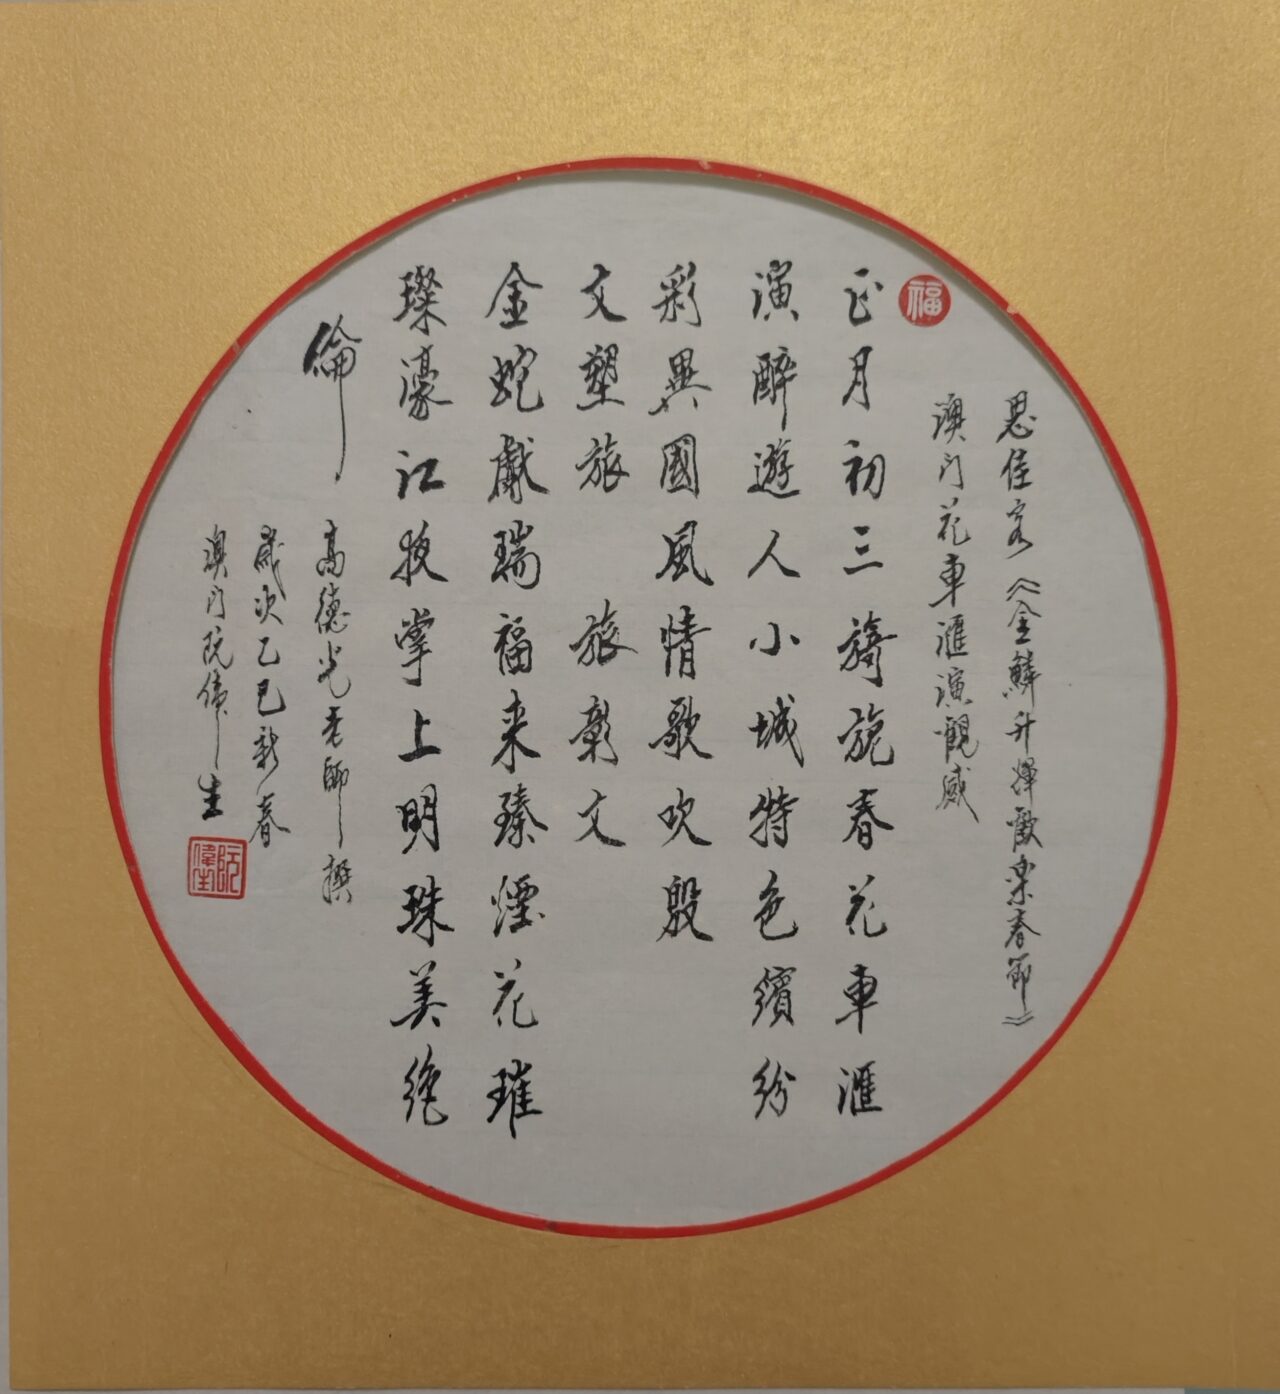 思佳客《金鱗升輝歡樂春節》
澳門花車滙演觀感
福
正月初三旖旎春花車滙
演醉遊人小城特色繽紛
彩異國風情歌吹殷
文塑旅 旅彰文
金蛇獻瑞福來臻煙花璀
璨濠江夜掌上明珠美絶
倫
高德光老師撰
歲次乙巳新春
澳門阮偉生
阮偉